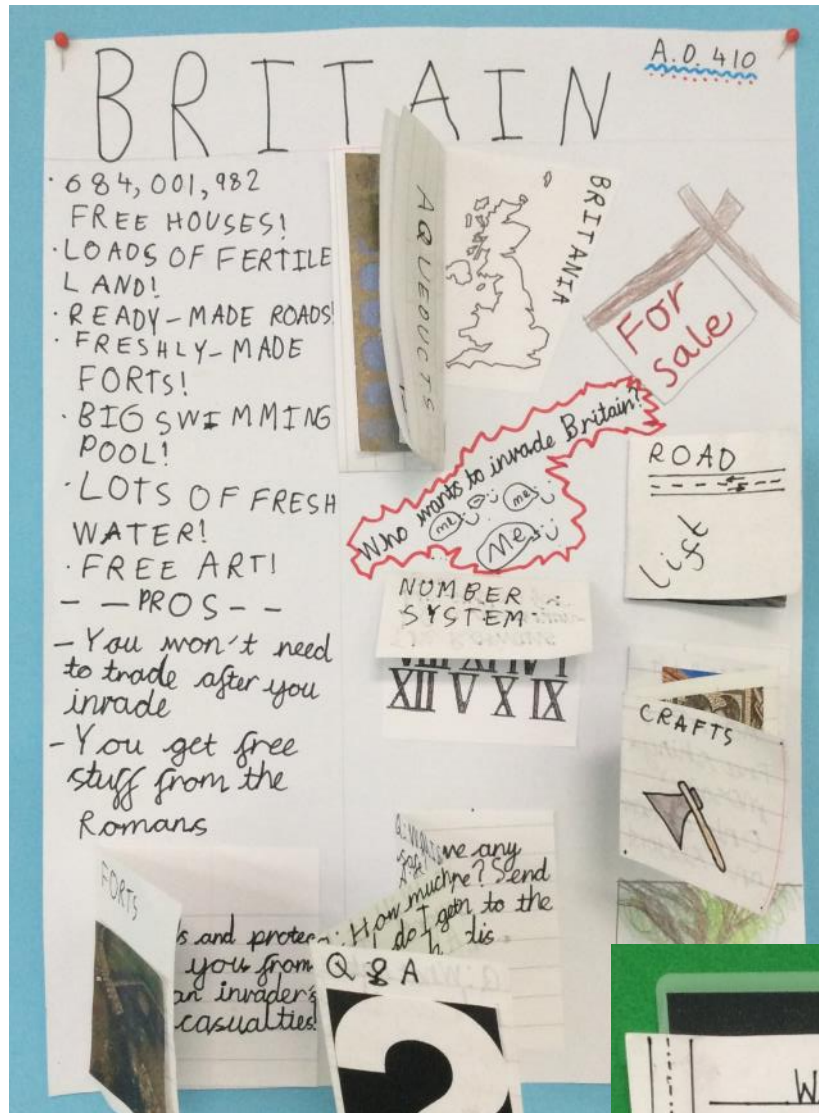 BRITAIN
A.D. 410
· 684,001,982
FREE HOUSES!
· LOADS OF FERTILE
LAND!
· READY-MADE ROADS!
· FRESHLY-MADE
FORTS!
· BIG SWIMMING
POOL!
· LOTS OF FRESH
WATER!
· FREE ART!
- - PROS - -
- You won't need
to trade after you
invade
- You get free
stuff from the
Romans
AQUEDUCTS
BRITANIA
For
sale
Who wants to invade Britain?
me
me
Me
ROAD
list
NUMBER
SYSTEM
XII V X IX
CRAFTS
FORTS
s and protec
you from
an invader's
casualties!
ve any
? Send
to the
How much
do I get
Q & A
?
W